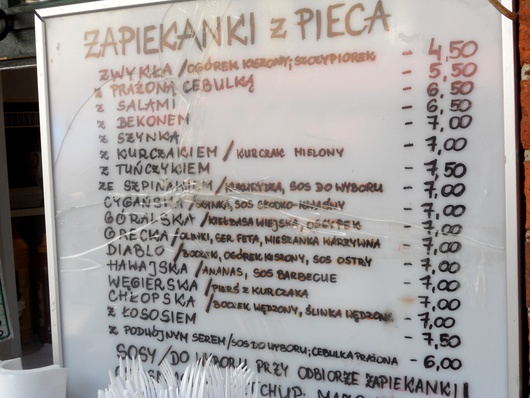 ZAPIEKANKI z PIECA
ZWYKŁA / OGÓREK KISZONY; SZCZYPIOREK - 4,50
z PRAŻONĄ CEBULKĄ - 5,50
z SALAMI - 6,50
z BEKONEM - 6,50
z SZYNKĄ - 7,00
z KURCZAKIEM / KURCZAK MIELONY - 7,00
z TUŃCZYKIEM - 7,50
ZE SZPINAKIEM / KUKURYDZA, SOS DO WYBORU - 7,00
CYGAŃSKA / SZYNKA, SOS SŁODKO KWAŚNY - 7,00
GÓRALSKA / KIEŁBASA WIEJSKA, OSCYPEK - 7,00
GRECKA / OLIWKI, SER FETA, MIESZANKA WARZYWNA - 7,00
DIABLO / BOCZEK, OGÓREK KISZONY, SOS OSTRY - 7,00
HAWAJSKA / ANANAS, SOS BARBECUE - 7,00
WĘGIERSKA / PIERŚ Z KURCZAKA - 7,00
CHŁOPSKA / BOCZEK WĘDZONY, SLINKA WĘDZONA - 7,00
z ŁOSOSIEM - 7,50
z PODWÓJNYM SEREM / SOS DO WYBORU; CEBULKA PRAŻONA - 6,00
SOSY / DO WYBORU PRZY ODBIORZE ZAPIEKANKI